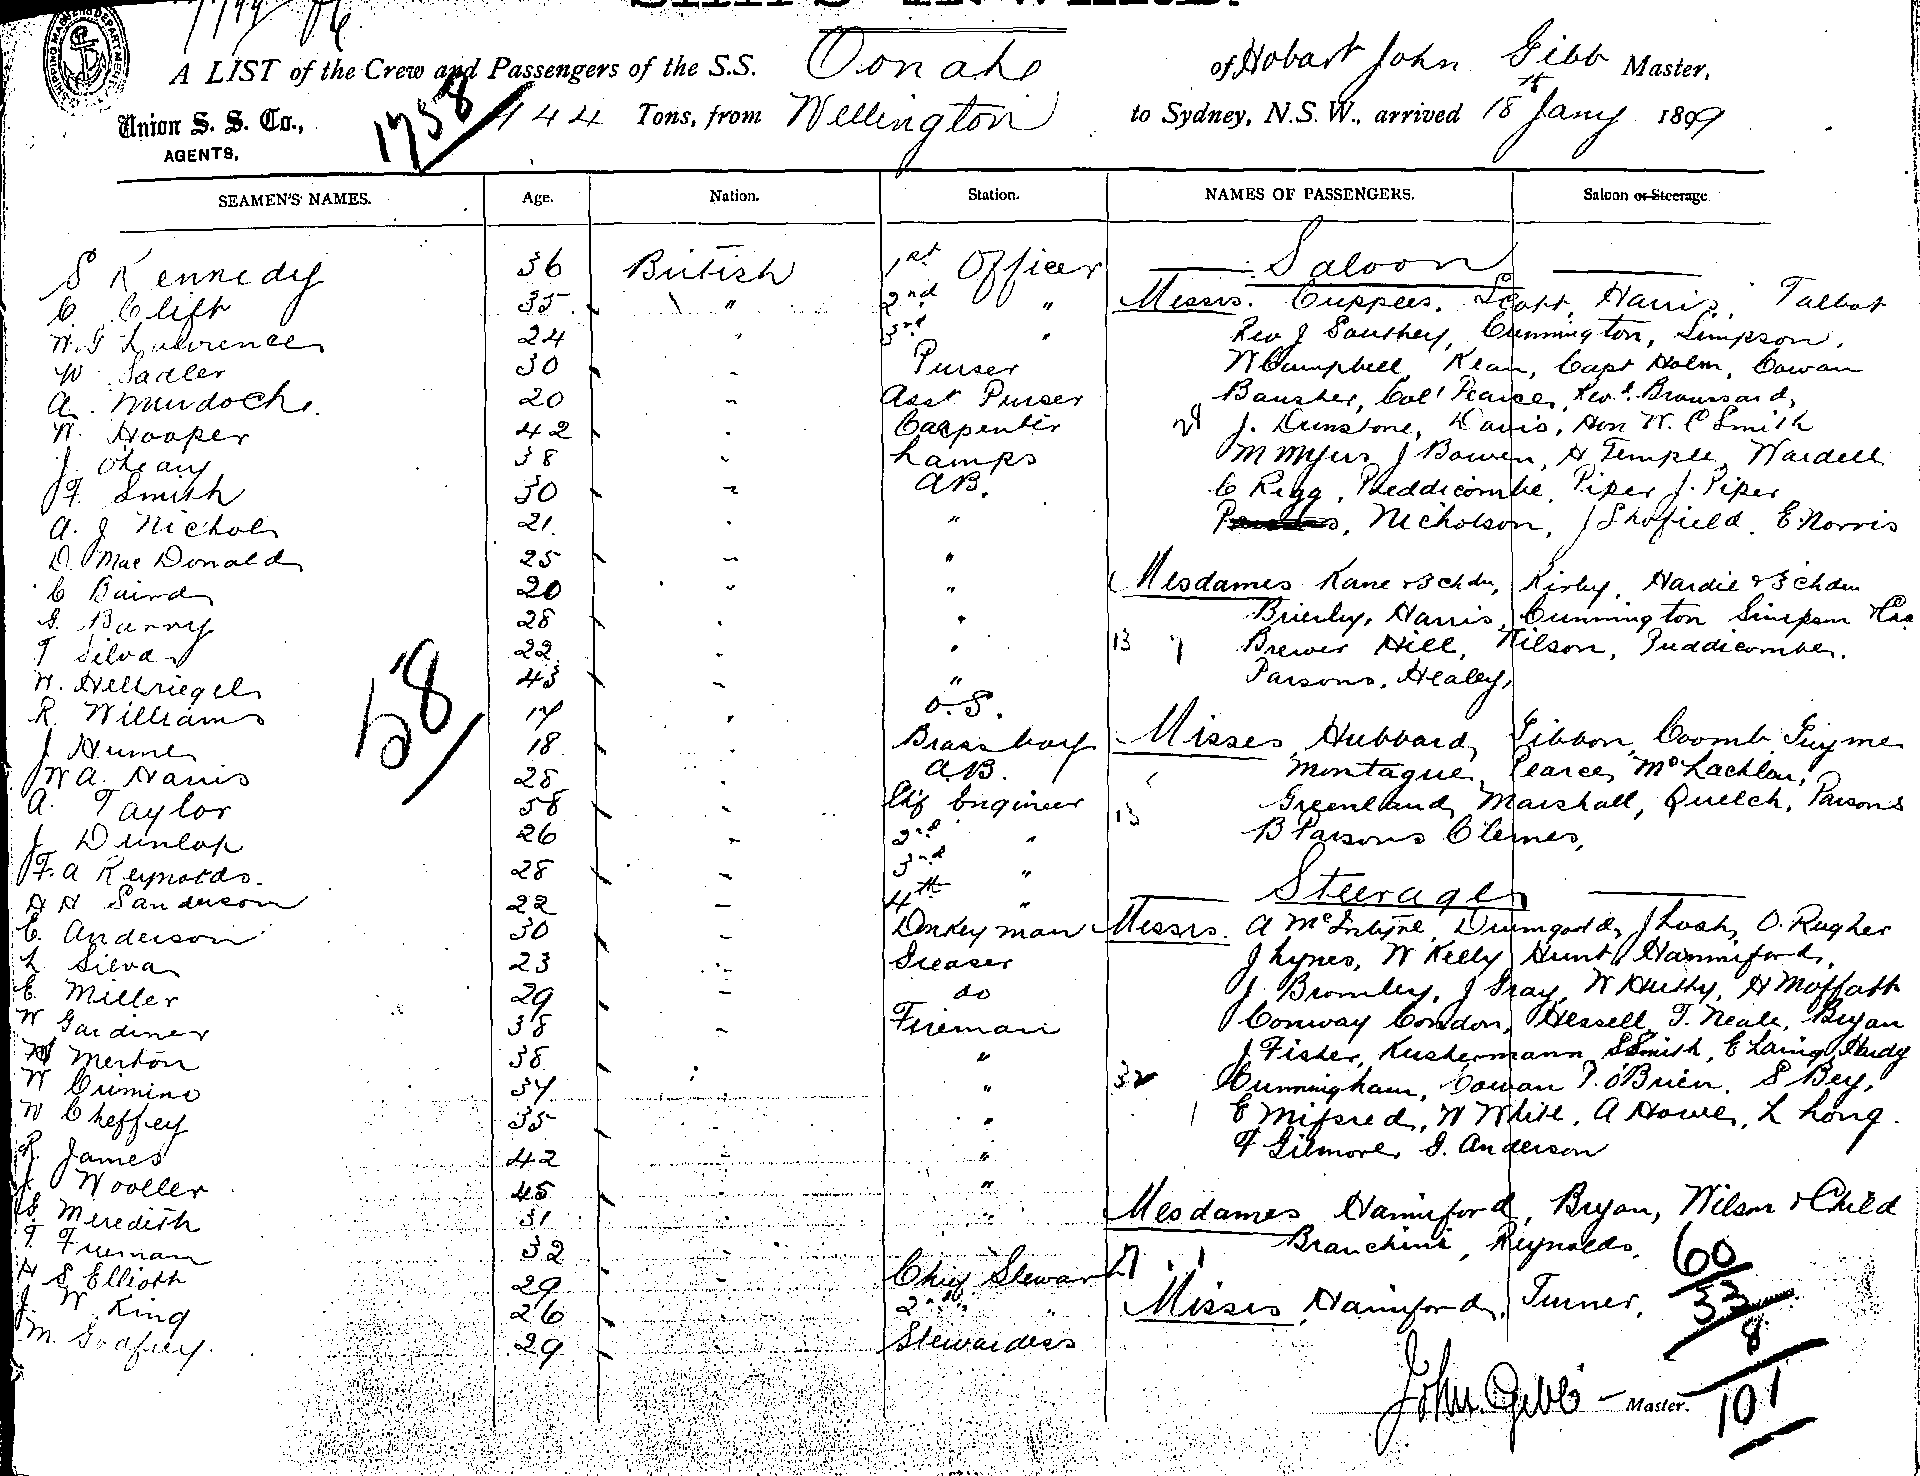 SHIPS INWARD.
A LIST of the Crew and Passengers of the S.S. Oonah of Hobart John Gibb Master,
Union S. S. Co., 1758 144 Tons, from Wellington to Sydney, N.S.W., arrived 18th Jany 1899
AGENTS,
SEAMEN'S NAMES. Age. Nation. Station. NAMES OF PASSENGERS. Saloon or Steerage
S Kennedy 36 British 1st Officer
C. Clift 35 " 2nd "
W.G Lawrence 24 " 3rd "
W Sadler 30 " Purser
A. Murdoch 20 " Asst Purser
W. Hooper 42 " Carpenter
J. Oleary 38 " Lamps
F. Smith 30 " AB.
A. J Nichols 21 " "
D. MacDonald 25 " "
C Baird 20 " "
G. Barry 28 " "
T Silva 22 " "
W. Hellriegel 43 " "
R. Williams 17 " O.S.
J Hume 18 " Brass boy
W A. Harris 28 " AB.
A. Taylor 58 " Chf Engineer
J Dunlop 26 " 2nd "
F. A Reynolds. 28 " 3rd "
A H Sanderson 22 " 4th "
C. Anderson 30 " Donkeyman
L Silva 23 " Greaser
E. Miller 29 " do
W Gardiner 38 " Fireman
Merton 38 " "
W Crimino 37 " "
W Cheffey 35 " "
James 42 " "
J. Wooller 45 " "
G Meredith 31 " "
T. Freeman 32
H S Elliott 29 " Chief Steward
J. W King 26 " 2nd "
M. Godfrey. 29 Stewardess
58
Saloon
Messrs. Cupples, Scott, Harris, Talbot
Rev J Southey, Cunnington, Simpson,
W Campbell, Kean, Capt Holm, Cowan
Bausher, Col Pearce, Revd. Broussard,
J. Dunstone, Davis, Hon W. C Smith
M Myers J Bowen, H Temple, Wardell
C Rigg, Peddicombe, Piper J. Piper
Nicholson, J Shofield, E Norris
Mesdames Kane & 3 chdn, Kirby, Hardie & 3 chdn
Brierly, Harris, Cunnington Simpson
13 Brewer Hill, Wilson, Puddicombe.
Parsons, Healey,
Misses Hubbard, Gibbon, Coomb, Guyme
Montague, Pearce, McLachlan,
13 Greenland, Marshall, Quelch, Parsons
B Parsons Clemes,
Steerage
Messrs. A McIntyre, Drumgould, J Lush, O. Rugher
J Lynes, W Kelly Hunt Hanniford,
J. Bromley, J Gray, W Huthy, H Moffatt
Conway Condon, Hessell, T. Neale, Bryan
J Fisher, Kustermann S Smith, E Laing Hardy
32 Cunningham, Cowan P. O'Brien, S Bey,
E Mifsred, W White, A Howe, L Long.
F Gilmore G. Anderson
Mesdames Hanniford, Bryan, Wilson & Child
Branchini, Reynolds,
Misses Hanniford, Turner,
60
33
8
101
John Gibb — Master.